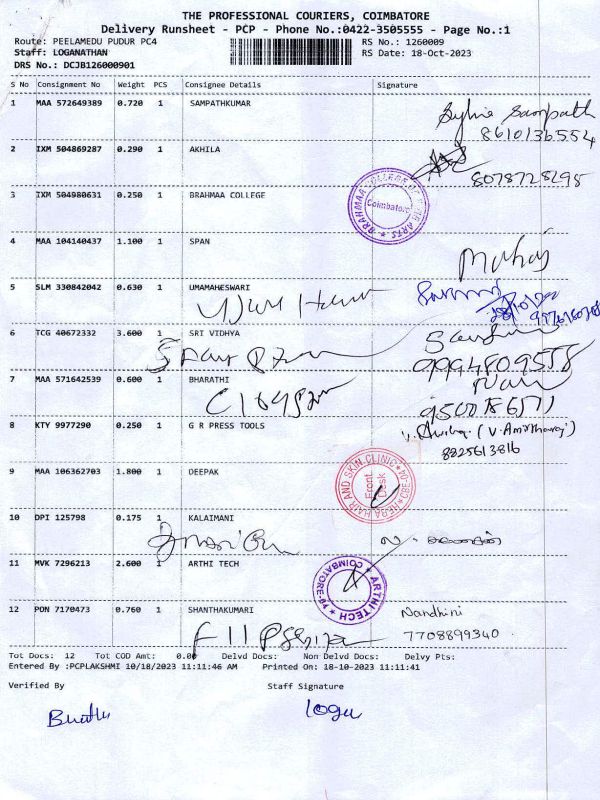 THE PROFESSIONAL COURIERS, COIMBATORE
Delivery Runsheet - PCP - Phone No.:0422-3505555 - Page No.:1
Route: PEELAMEDU PUDUR PC4 RS No.: 1260009
Staff: LOGANATHAN RS Date: 18-Oct-2023
DRS No.: DCJB126000901
S No Consignment No Weight PCS Consignee Details Signature
1 MAA 572649389 0.720 1 SAMPATHKUMAR
Sampath
8610136554
2 IXM 504869287 0.290 1 AKHILA
8078728298
3 IXM 504980631 0.250 1 BRAHMAA COLLEGE
BRAHMAA COLLEGE OF ARTS Coimbatore
4 MAA 104140437 1.100 1 SPAN
5 SLM 330842042 0.630 1 UMAMAHESWARI
6 TCG 40672332 3.600 1 SRI VIDHYA
9994809558
7 MAA 571642539 0.600 1 BHARATHI
8 KTY 9977290 0.250 1 G R PRESS TOOLS
8825613816
9 MAA 106362703 1.800 1 DEEPAK
HERA HAIR AND SKIN CLINIC CBE-04 Front Desk
10 DPI 125798 0.175 1 KALAIMANI
11 MVK 7296213 2.600 1 ARTHI TECH
ARTHI TECH COIMBATORE
12 PON 7170473 0.760 1 SHANTHAKUMARI
Nandhini
7708899340
Tot Docs: 12 Tot COD Amt: 0.00 Delvd Docs: Non Delvd Docs: Delvy Pts:
Entered By :PCPLAKSHMI 10/18/2023 11:11:46 AM Printed On: 18-10-2023 11:11:41
Verified By Staff Signature
logu